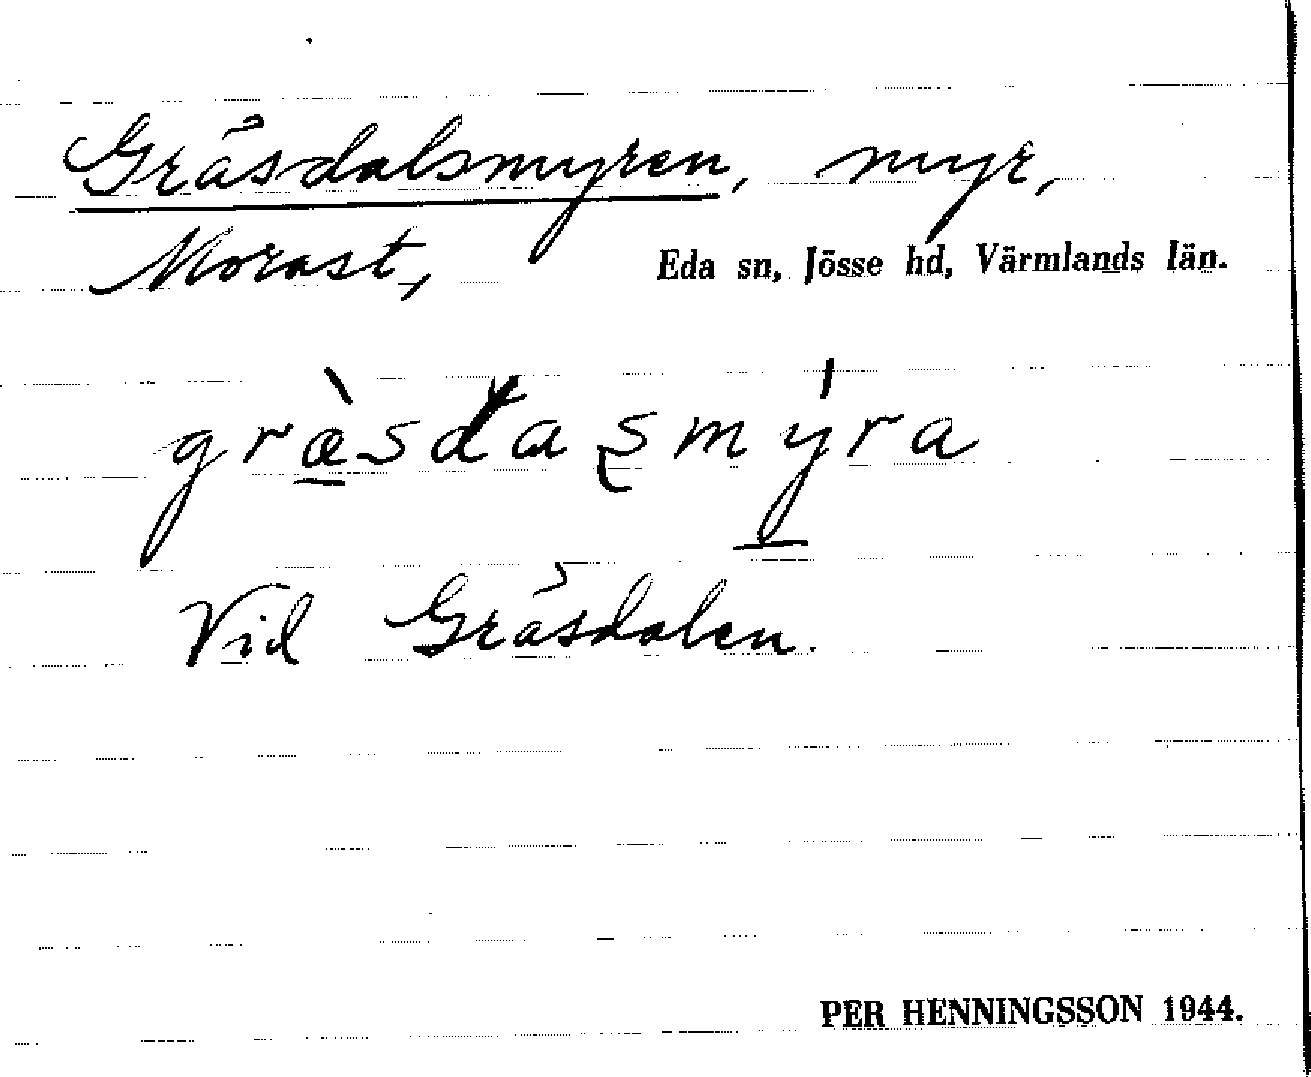 Gräsdalsmyren, myr,
Morast, Eda sn, Jösse hd, Värmlands län.
græ̀sdaşmýra
Vid Gräsdalen.
PER HENNINGSSON 1944.